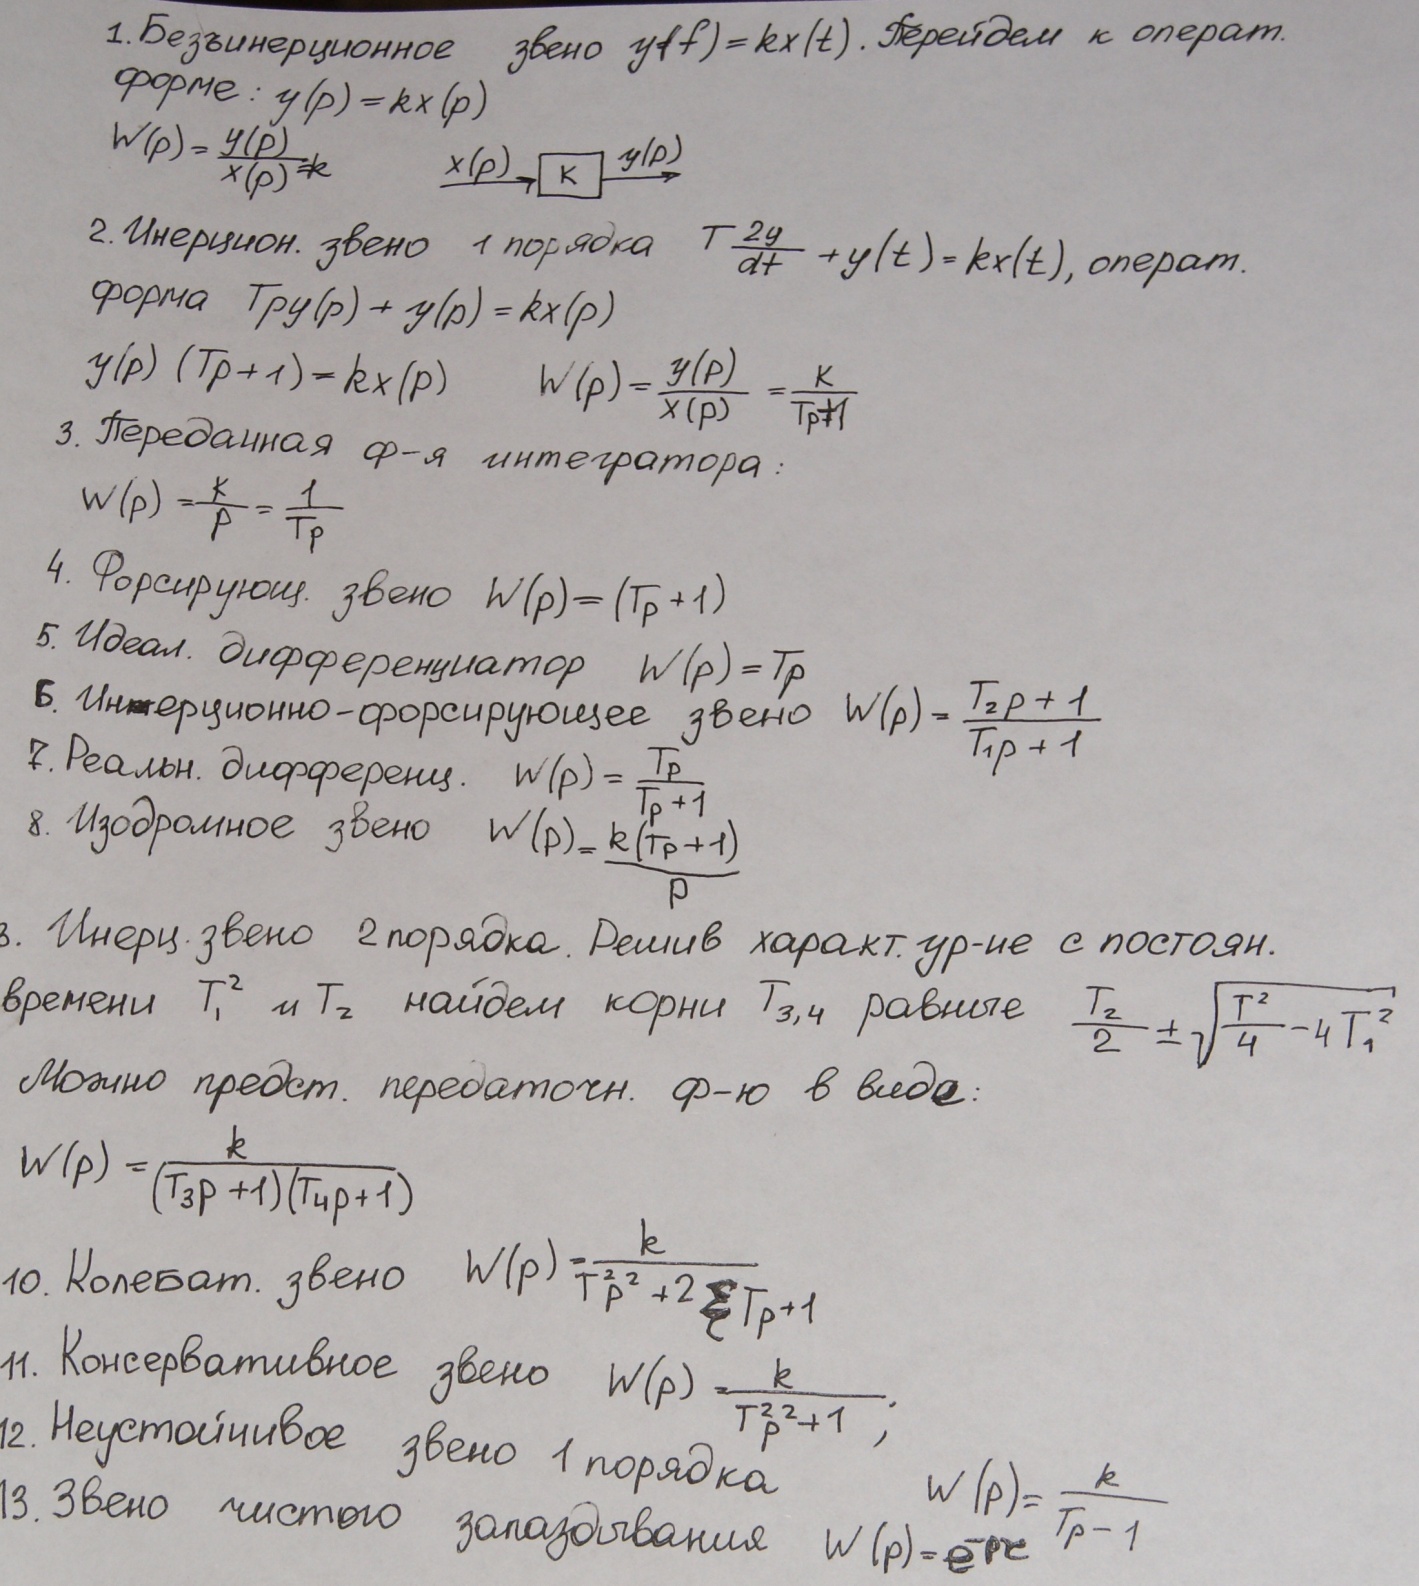 1. Безъинерционное звено y(f) = kx(t). Перейдем к операт.
форме: y(p) = kx(p)
W(p) = y(p)/x(p) = k x(p) K y(p)
2. Инерцион. звено 1 порядка T 2y/dt + y(t) = kx(t), операт.
форма Tpy(p) + y(p) = kx(p)
y(p) (Tp+1) = kx(p) W(p) = y(p)/x(p) = K/Tp+1
3. Переданная ф-я интегратора:
W(p) = K/p = 1/Tp
4. Форсирующ. звено W(p) = (Tp+1)
5. Идеал. дифференциатор W(p) = Tp
6. Инерционно-форсирующее звено W(p) = T₂p+1/T₁p+1
7. Реальн. дифференц. W(p) = Tp/Tp+1
8. Изодромное звено W(p) = k(Tp+1)/p
3. Инерц. звено 2 порядка. Решив характ. ур-ие с постоян.
времени T₁² и T₂ найдем корни T₃,₄ равные T₂/2 ± √T²/4 - 4T₁²
Можно предст. передаточн. ф-ю в виде:
W(p) = k/(T₃p+1)(T₄p+1)
10. Колебат. звено W(p) = k/T²p²+2ξTp+1
11. Консервативное звено W(p) = k/T²p²+1;
12. Неустойчивое звено 1 порядка W(p) = k/Tp-1
13. Звено чистого запаздывания W(p) = e⁻ᵖᵗ